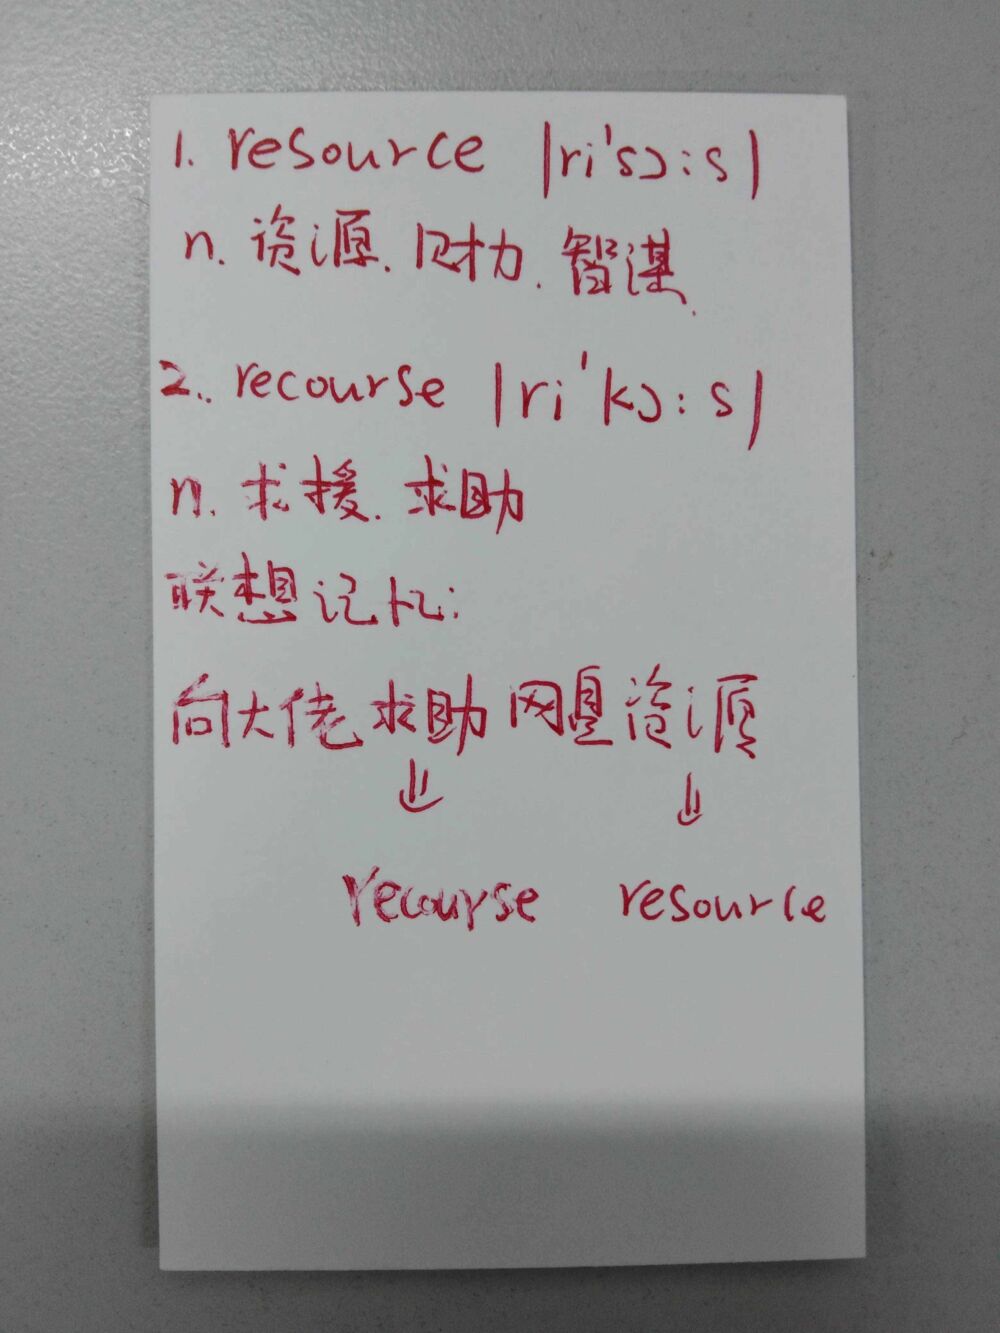 1. resource |ri'sɔ:s|
n. 资源. 财力. 智谋.
2. recourse |ri'kɔ:s|
n. 求援. 求助
联想记忆:
向大佬求助网盘资源
⇓ ⇓
recourse resource